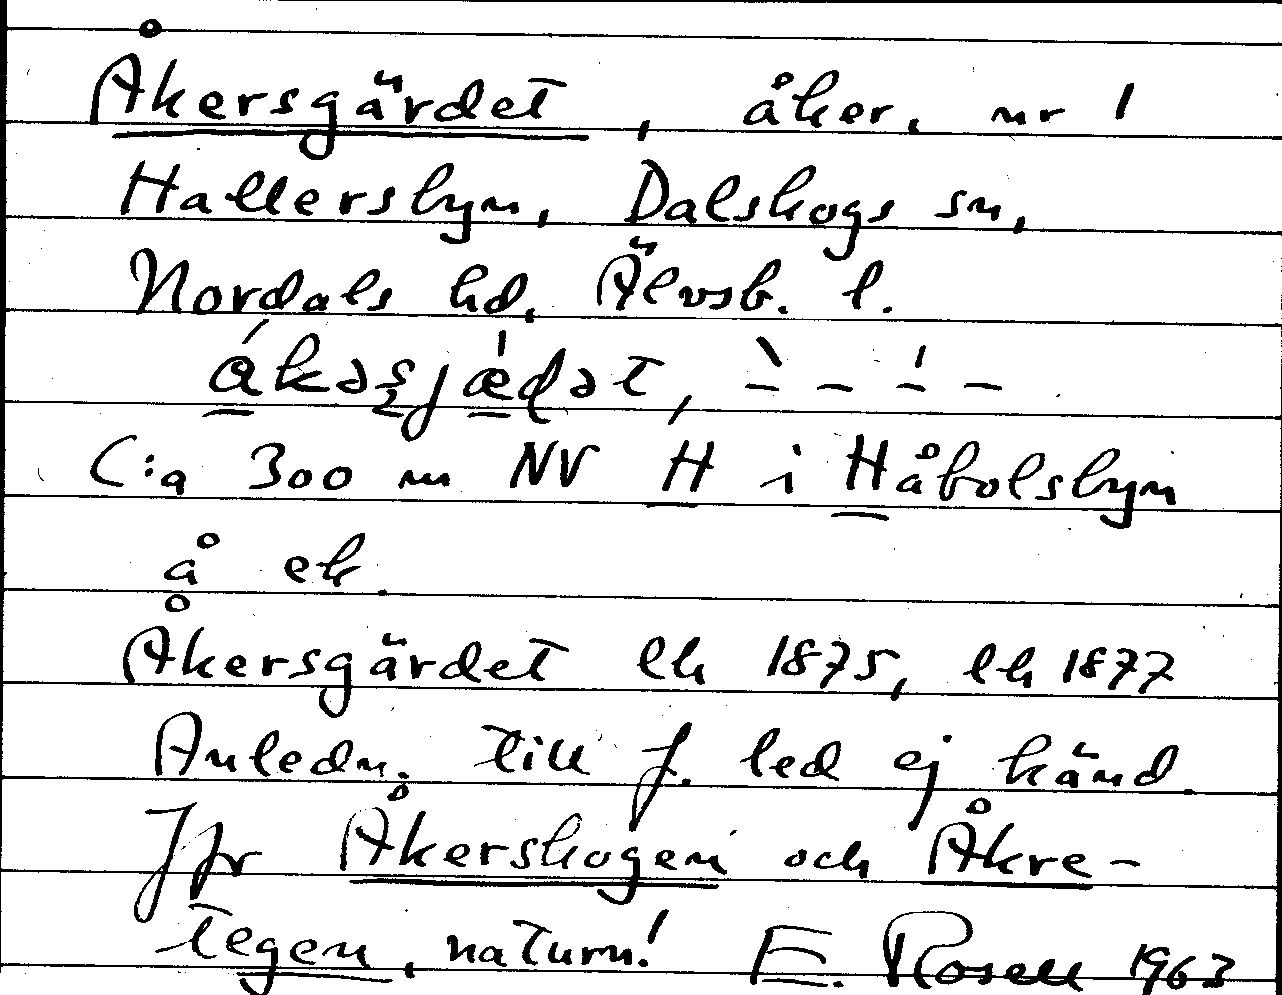 Åkersgärdet, åker, nr 1
Hallersbyn, Dalskogs sn,
Nordals hd, Älvsb. l.
C:a 300 m NV H i Håbolsbyn
å ek.
Åkersgärdet lh 1875, lh 1877
Anledn. till f. led ej känd.
Jfr Åkerskogen och Åkre-
tegen, naturn! E. Rosell 1963